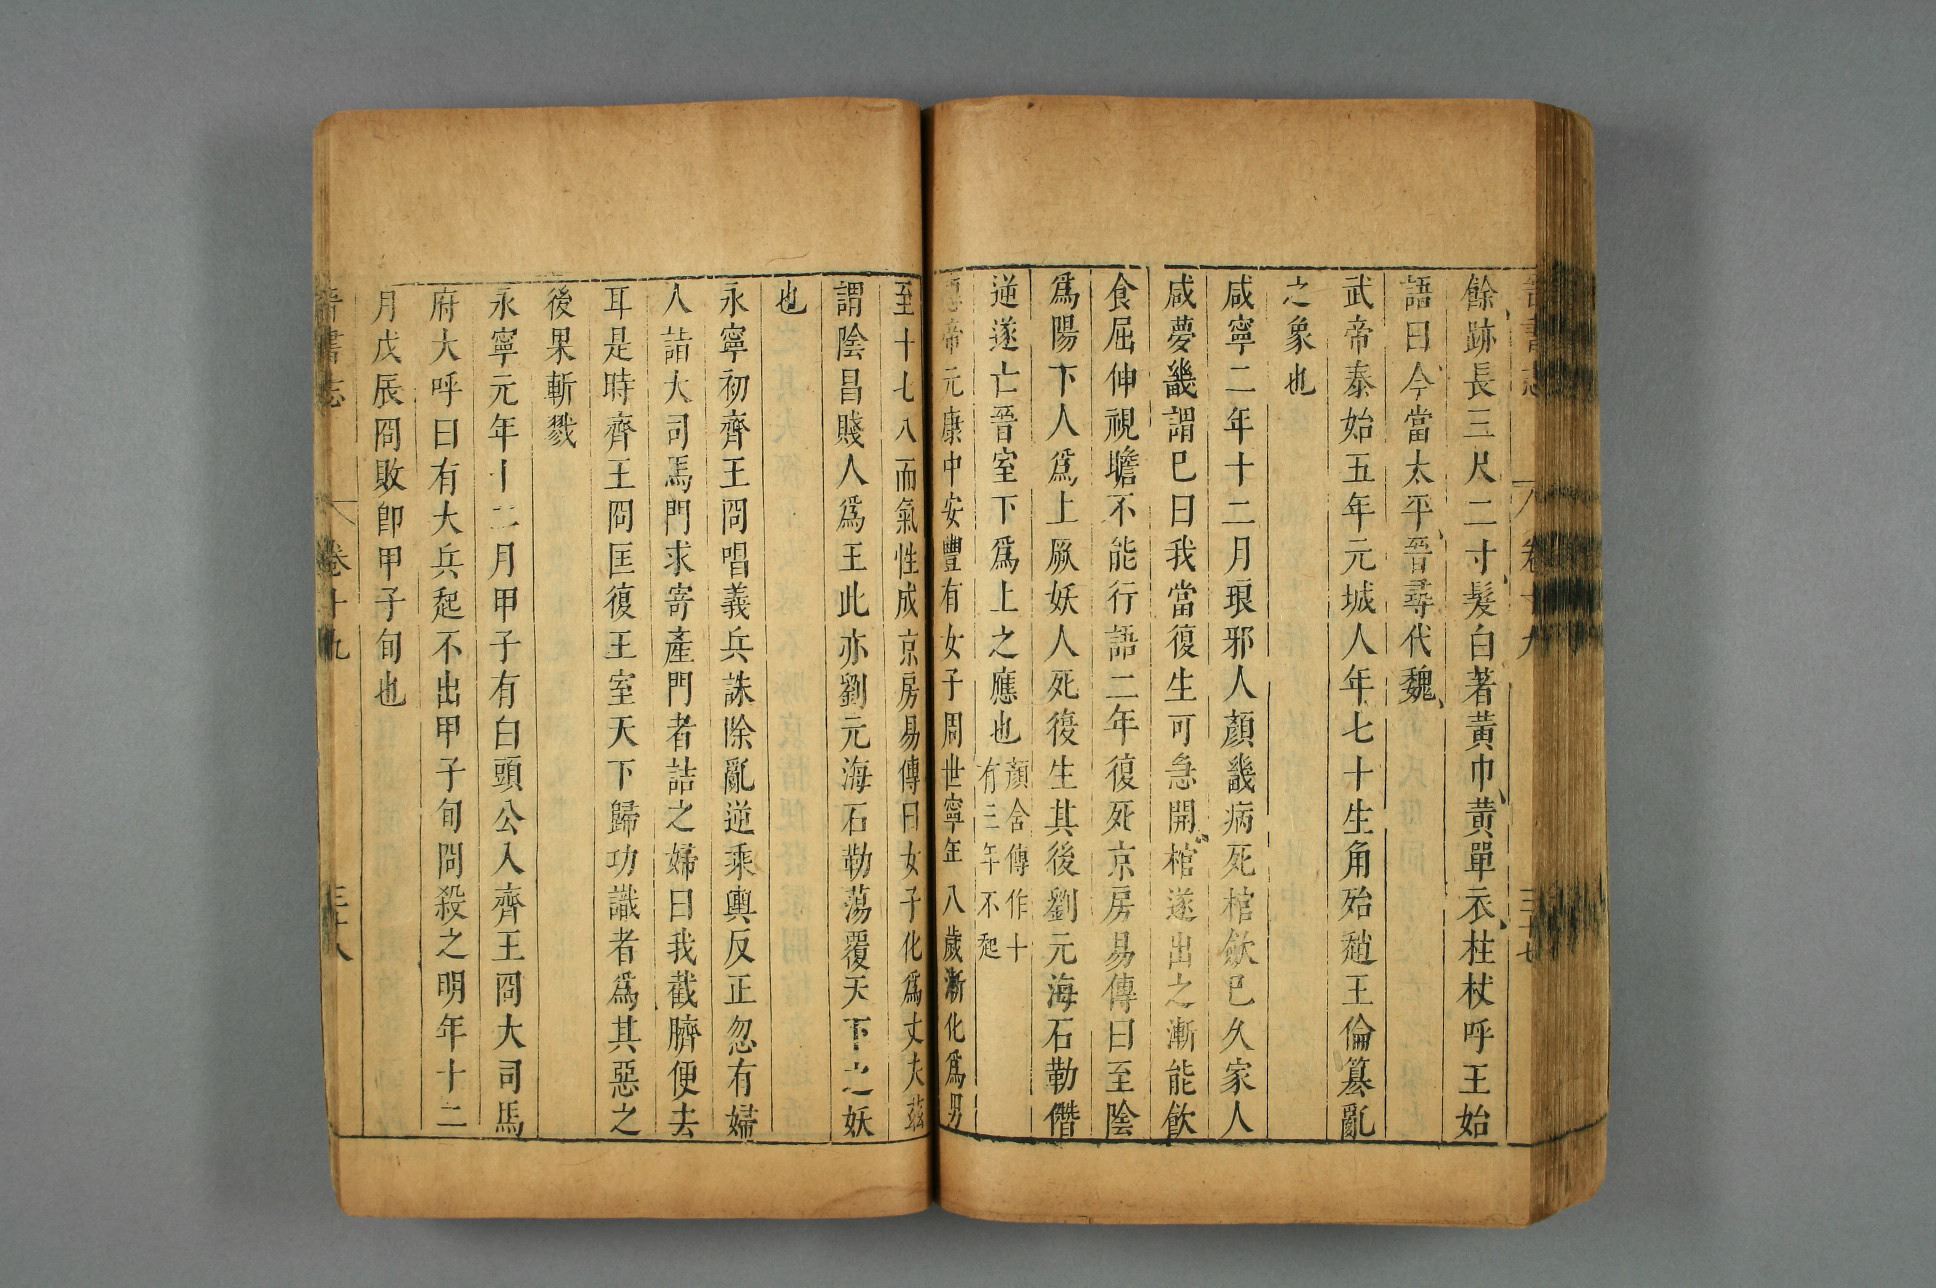 晉書志 卷十九 三十七
餘跡長三尺二寸髮白著黃巾黃單衣柱杖呼王始
語曰今當太平晉尋代魏
武帝泰始五年元城人年七十生角殆趙王倫簒亂
之象也
咸寧二年十二月琅邪人顏畿病死棺斂已久家人
咸夢畿謂已曰我當復生可急開棺遂出之漸能飲
食屈伸視瞻不能行語二年復死京房易傳曰至陰
爲陽下人爲上厥妖人死復生其後劉元海石勒僭
逆遂亡晉室下爲上之應也顏含傳作十有三年不起
惠帝元康中安豐有女子周世寧年八歲漸化爲男
至十七八而氣性成京房易傳曰女子化爲丈夫茲
謂陰昌賤人爲王此亦劉元海石勒蕩覆天下之妖
也
永寧初齊王冏唱義兵誅除亂逆乘輿反正忽有婦
人詣大司馬門求寄產門者詰之婦曰我截臍便去
耳是時齊王冏匡復王室天下歸功識者爲其惡之
後果斬戮
永寧元年十二月甲子有白頭公入齊王冏大司馬
府大呼曰有大兵起不出甲子旬冏殺之明年十二
月戊辰冏敗卽甲子旬也
晉書志 卷十九 三十八